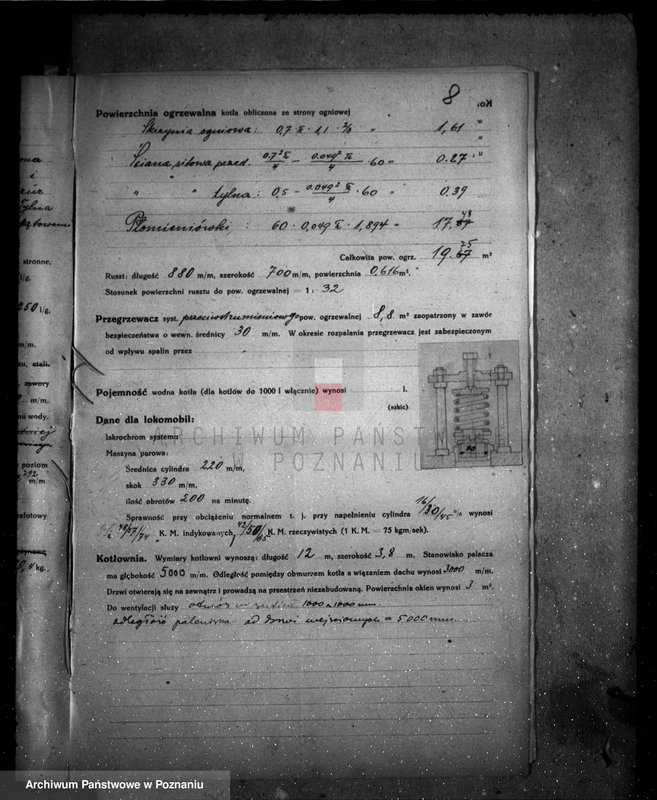 8
Kot
Powierzchnia ogrzewalna kotła obliczona ze strony ogniowej
Skrzynia ogniowa: 0,7 π · 1,1 · 2/3 = 1,61 "
Ściana sitowa przed. 0.7² π/4 − 0.049² π/4 · 60 = 0.27 "
" " tylna: 0,5 − 0.049² π/4 · 60 = 0.39
Płomieniówki: 60 · 0,049 π · 1,894 = 17.48
Całkowita pow. ogrz. 19.75 m²
Ruszt: długość 880 m/m, szerokość 700 m/m, powierzchnia 0,616 m².
Stosunek powierzchni rusztu do pow. ogrzewalnej = 1 : 32
Przegrzewacz syst. przeciwstrumieniowego pow. ogrzewalnej 8,8 m² zaopatrzony w zawór
bezpieczeństwa o wewn. średnicy 30 m/m. W okresie rozpalania przegrzewacz jest zabezpieczonym
od wpływu spalin przez
Pojemność wodna kotła (dla kotłów do 1000 l włącznie) wynosi l.
(szkic).
30
Dane dla lokomobil:
Iskrochron systemu
Maszyna parowa:
Średnica cylindra 220 m/m,
skok 330 m/m,
ilość obrotów 200 na minutę.
Sprawność przy obciążeniu normalnem t. j. przy napełnieniu cylindra 16/30/45 % wynosi
48/57/74 K. M. indykowanych, 42/50/65 K. M. rzeczywistych (1 K. M. = 75 kgm/sek).
Kotłownia. Wymiary kotłowni wynoszą: długość 12 m, szerokość 3,8 m. Stanowisko palacza
ma głębokość 5000 m/m. Odległość pomiędzy obmurzem kotła a wiązaniem dachu wynosi 3000 m/m.
Drzwi otwierają się na zewnątrz i prowadzą na przestrzeń niezabudowaną. Powierzchnia okien wynosi 3 m².
Do wentylacji służy otwór w 1000 x 1000 mm.
odległość paleniska od drzwi wejściowych = 5000 mm.
ARCHIWUM PAŃSTWOWE
W POZNANIU
Archiwum Państwowe w Poznaniu